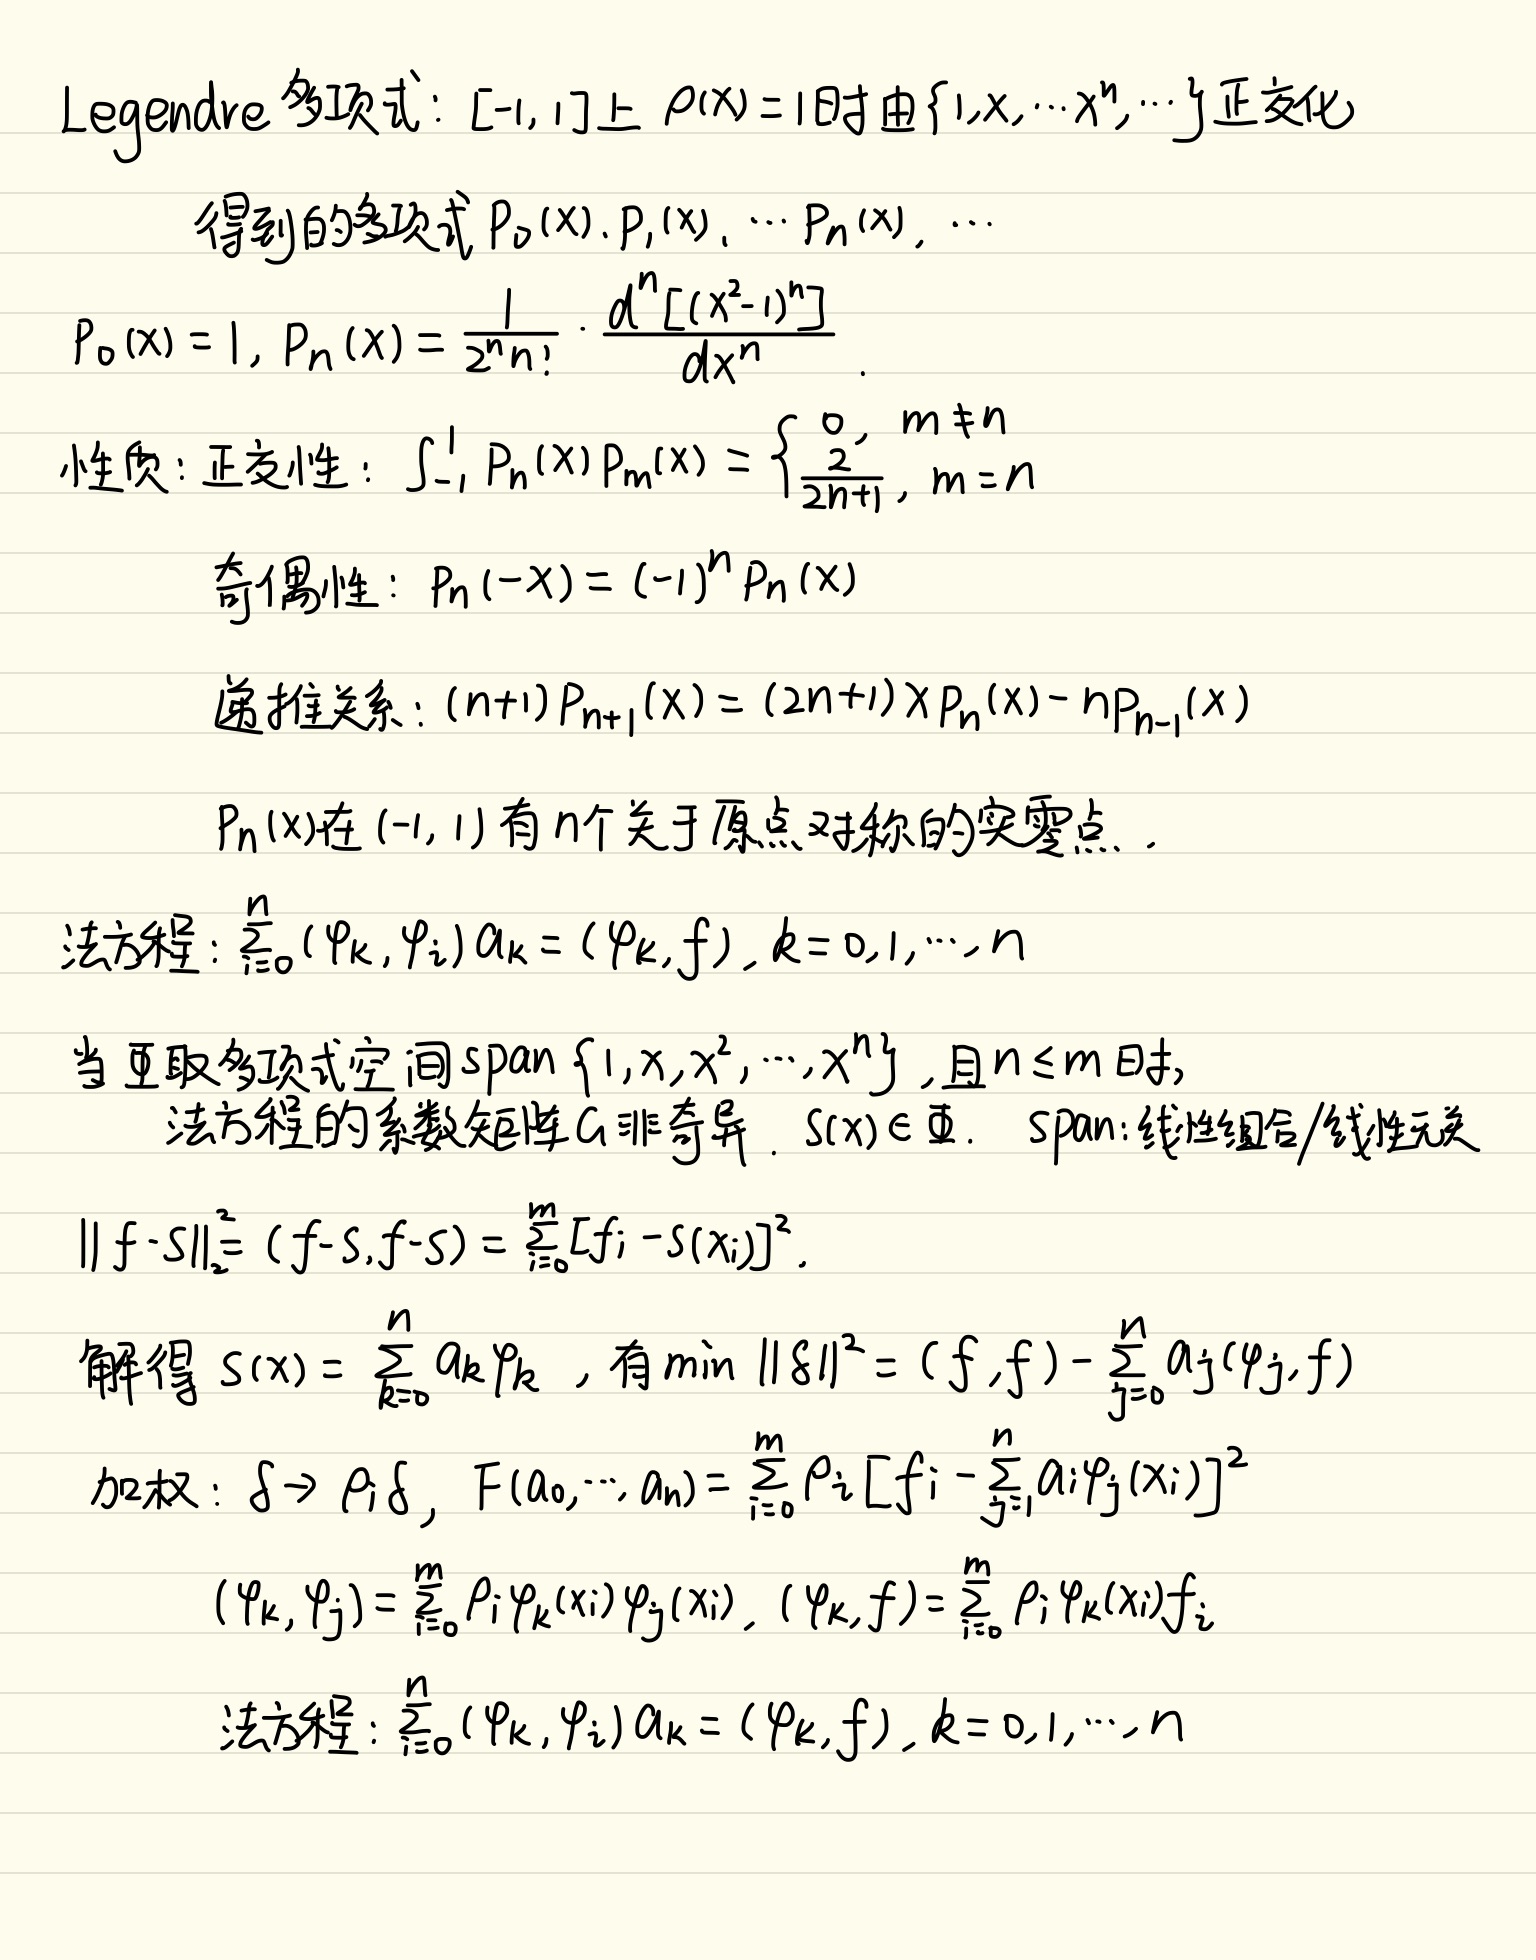 Legendre 多项式: [-1, 1]上 ρ(x) = 1时由{1, x, ⋯ xⁿ, ⋯}正交化
得到的多项式 P₀(x). P₁(x). ⋯ Pₙ(x), ⋯
P₀(x) = 1, Pₙ(x) = 1/(2ⁿn!) · dⁿ[(x²-1)ⁿ]/dxⁿ .
性质: 正交性: ∫₋₁¹ Pₙ(x) Pₘ(x) = { 0, m ≠ n
2/(2n+1), m = n
奇偶性: Pₙ(-x) = (-1)ⁿ Pₙ(x)
递推关系: (n+1) Pₙ₊₁(x) = (2n+1) x Pₙ(x) - nPₙ₋₁(x)
Pₙ(x)在 (-1, 1) 有 n个关于原点对称的实零点.
法方程: ∑ᵢ₌₀ⁿ (φₖ, φᵢ) aₖ = (φₖ, f), k = 0, 1, ⋯, n
当 Φ取多项式空间 span {1, x, x², ⋯, xⁿ}, 且 n ≤ m 时,
法方程的系数矩阵 G 非奇异. S(x) ∈ Φ. span: 线性组合/线性无关
||f - S||₂² = (f-S, f-S) = ∑ᵢ₌₀ᵐ [fᵢ - S(xᵢ)]².
解得 S(x) = ∑ₖ₌₀ⁿ aₖφₖ , 有 min ||δ||² = (f, f) - ∑ⱼ₌₀ⁿ aⱼ(φⱼ, f)
加权: δ → ρᵢδ, F(a₀, ⋯, aₙ) = ∑ᵢ₌₀ᵐ ρᵢ [fᵢ - ∑ⱼ₌₁ⁿ aᵢφⱼ(xᵢ)]²
(φₖ, φⱼ) = ∑ᵢ₌₀ᵐ ρᵢφₖ(xᵢ)φⱼ(xᵢ), (φₖ, f) = ∑ᵢ₌₀ᵐ ρᵢφₖ(xᵢ)fᵢ
法方程: ∑ᵢ₌₀ⁿ (φₖ, φᵢ) aₖ = (φₖ, f), k = 0, 1, ⋯, n